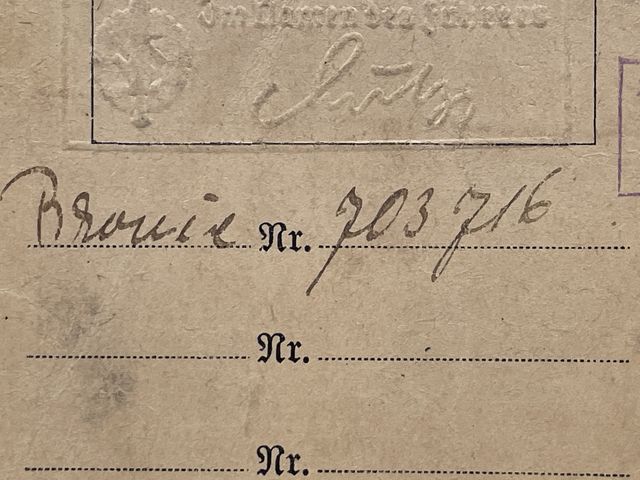 Im Namen des Führers
Lutze
Bronze Nr. 703716
Nr.
Nr.